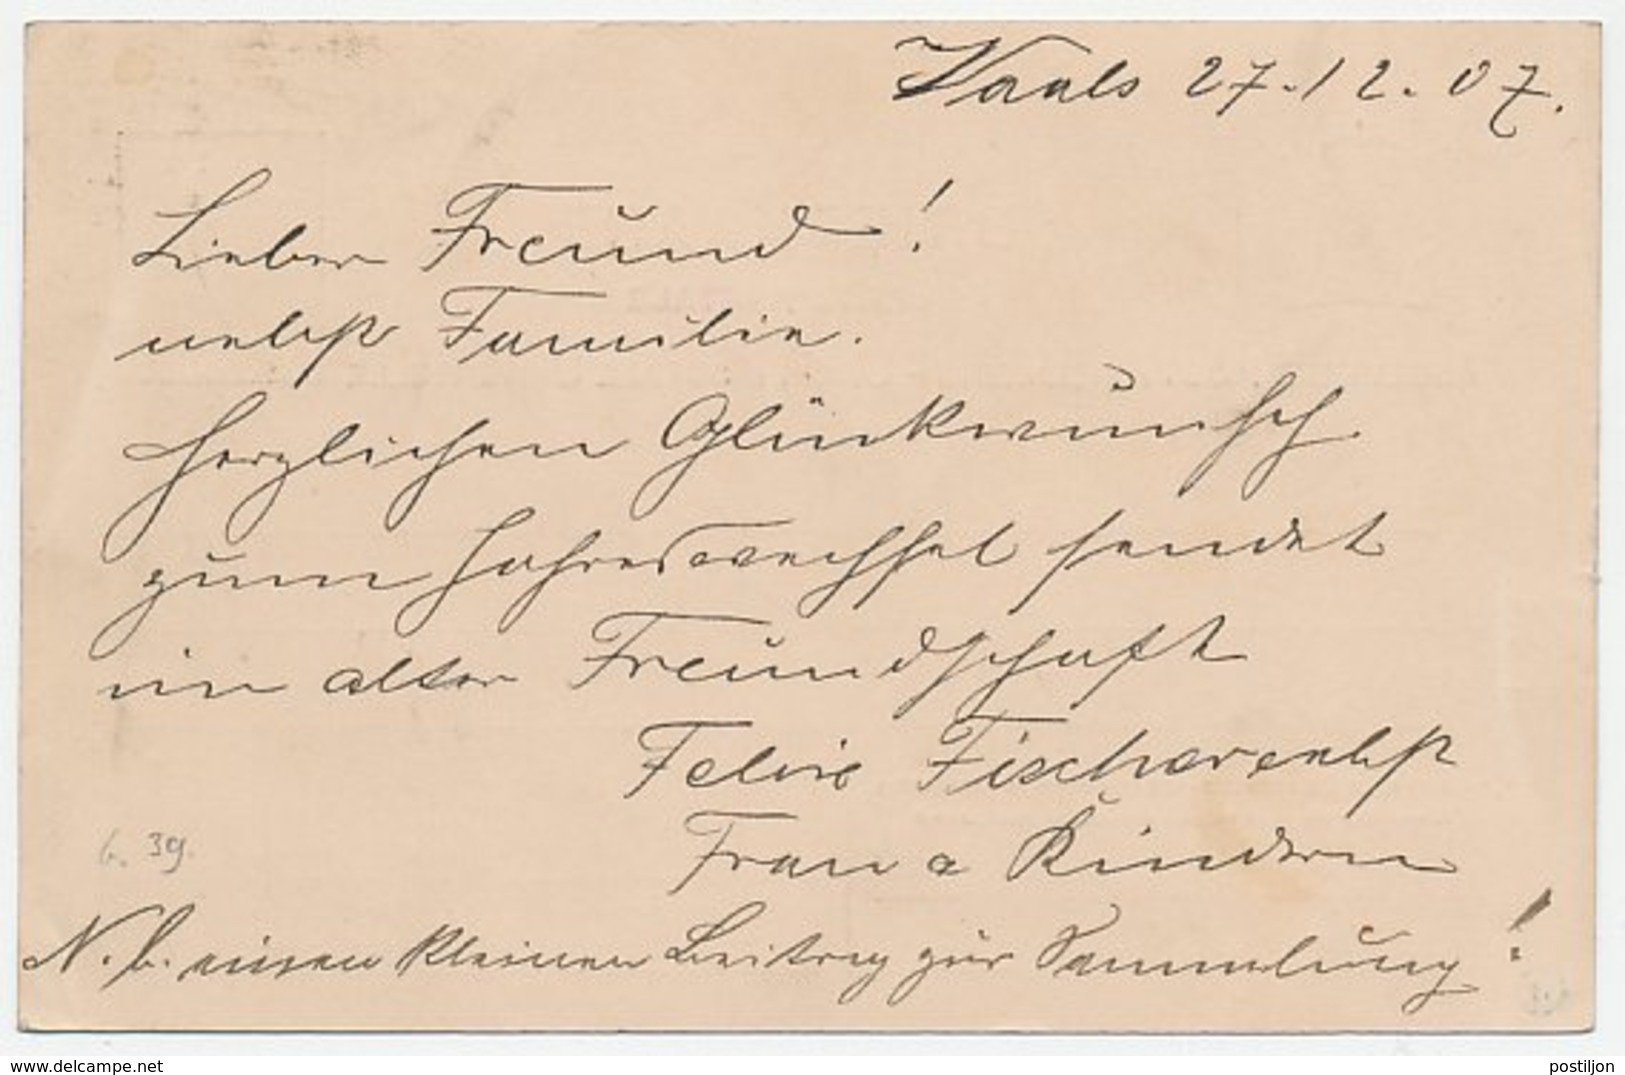 Vaals 27.12.07.
Lieber Freund!
nebst Familie.
Herzlichen Glückwunsch
zum Jahreswechsel sendet
in alter Freundschaft
Felix Fischer nebst
Frau & Kindern
6.39.
N.b. einen kleinen Beitrag zur Sammlung!
delcampe.net
postiljon